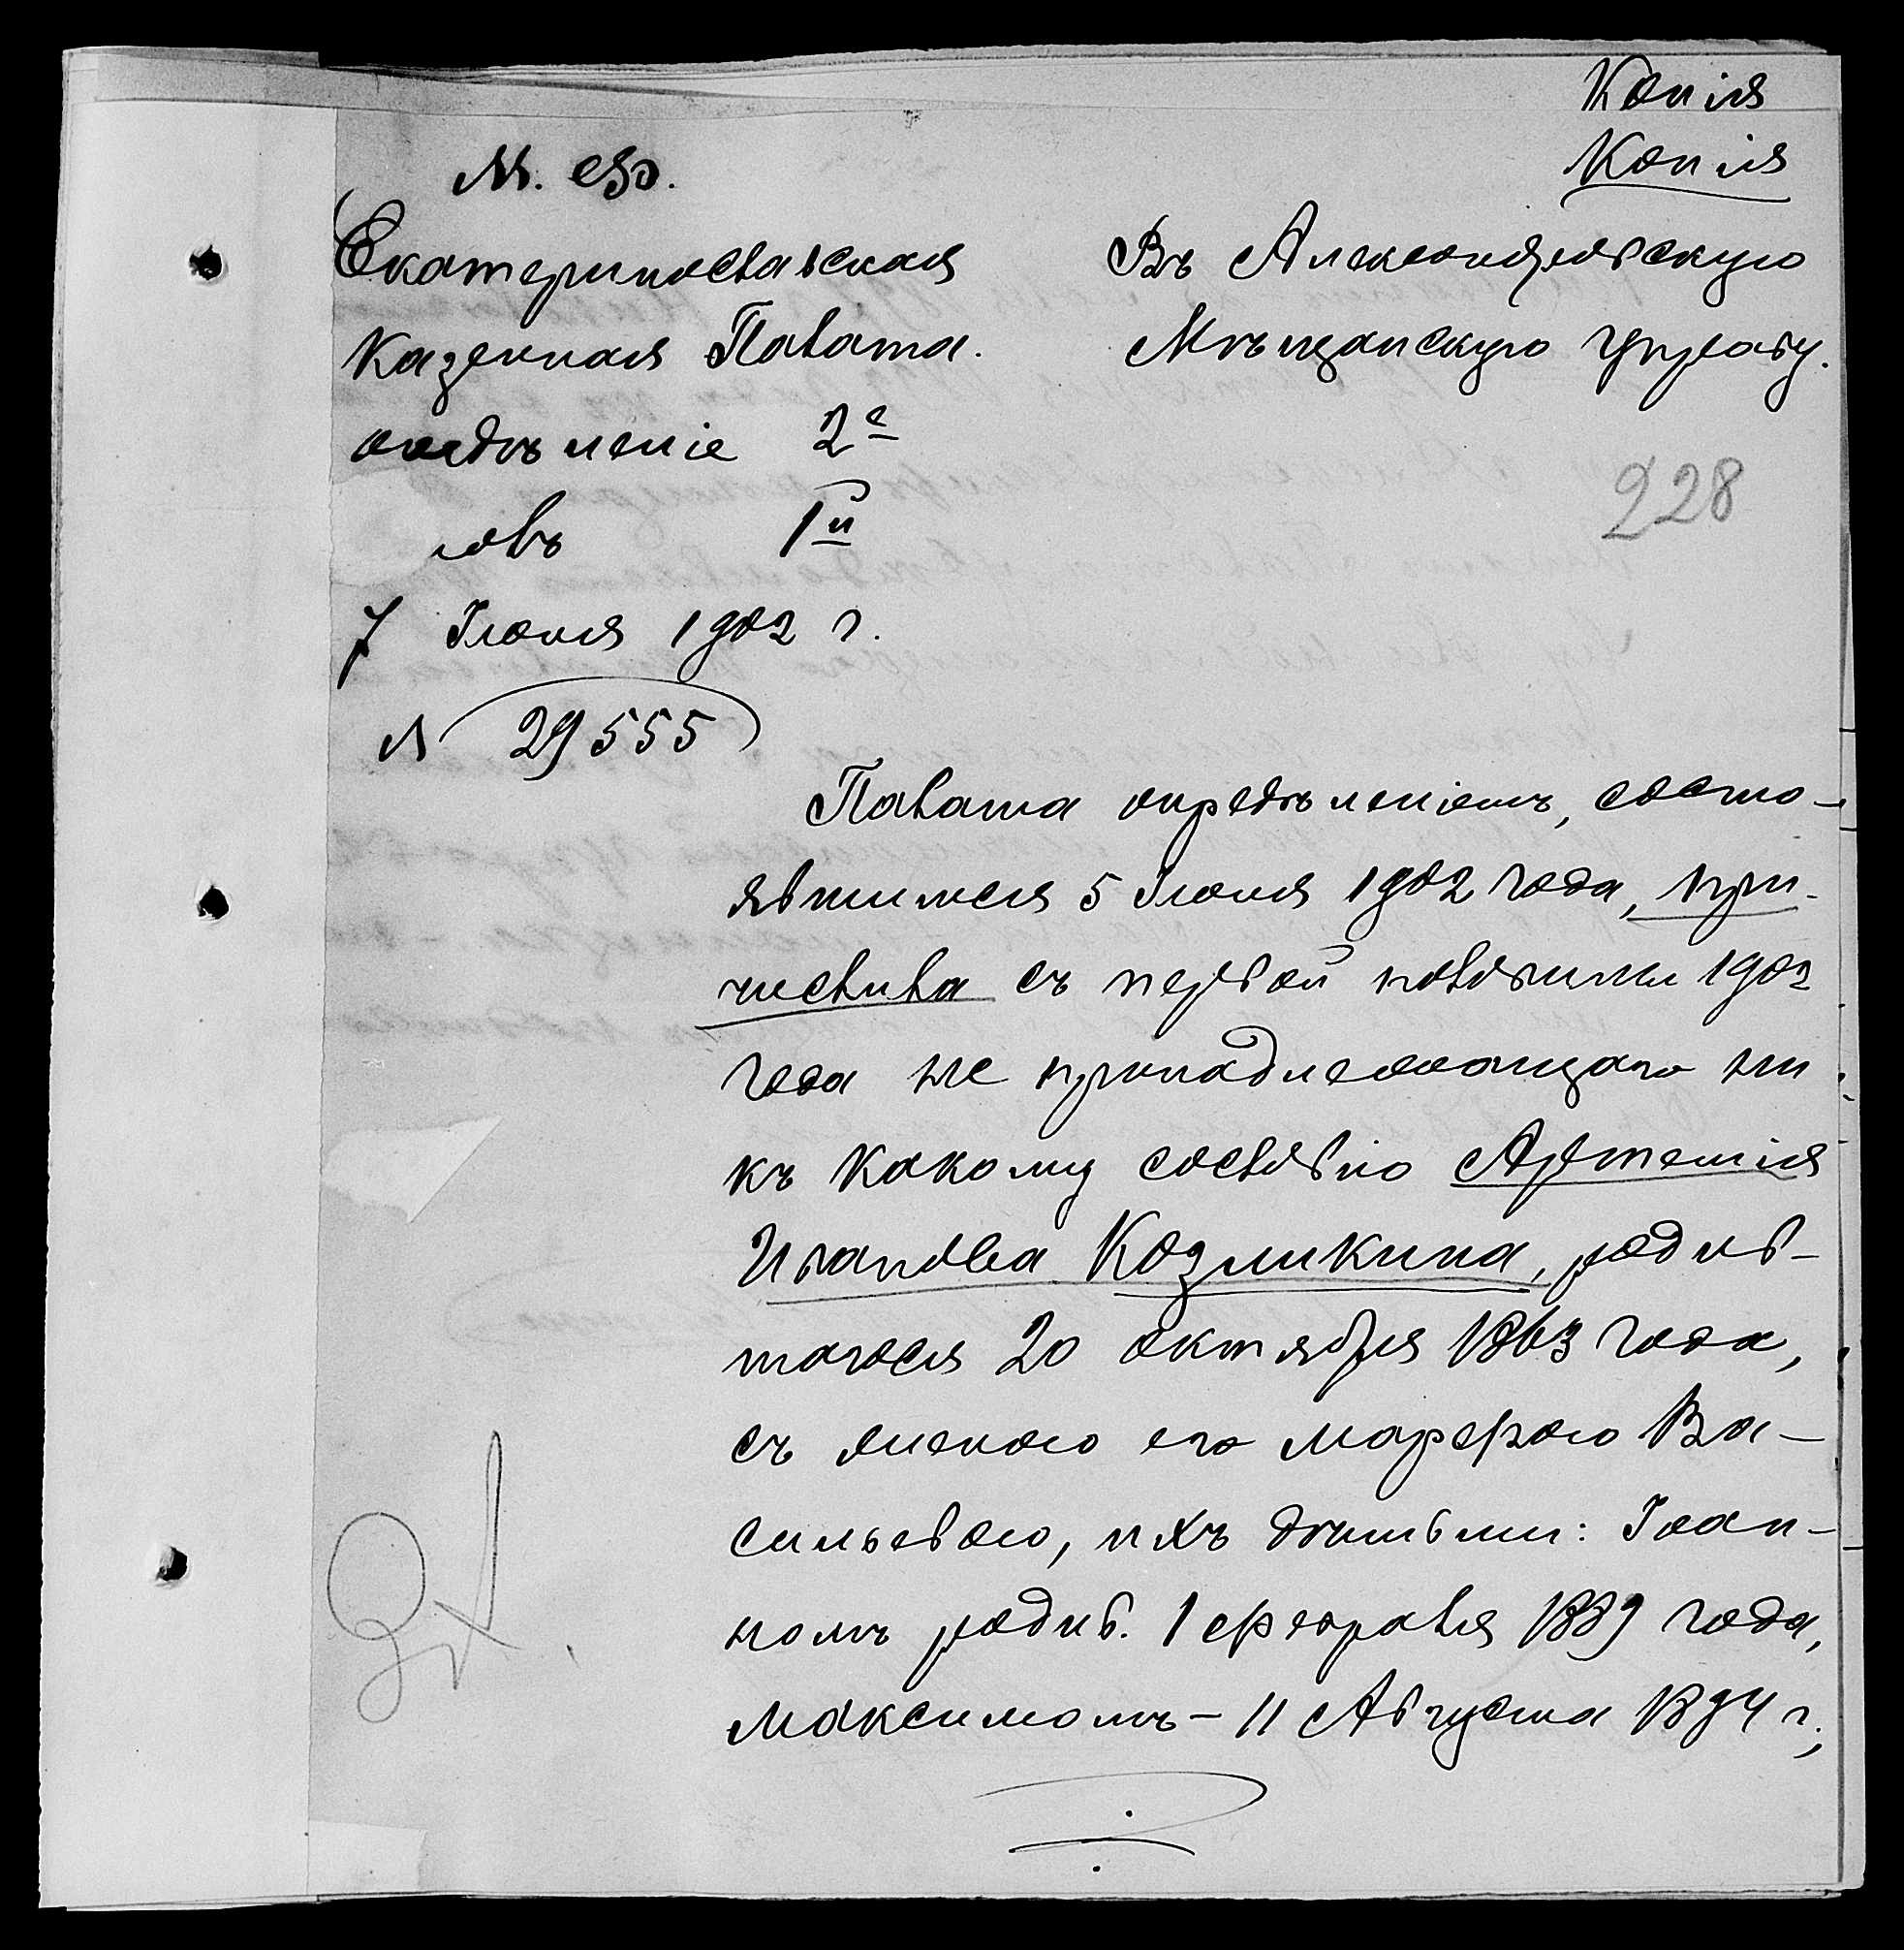 Копія
Копія
М. Ф.
Екатеринославская
Казенная Палата.
отдѣленіе 2е
столъ 1й
7 Іюня 1902 г.
№ 29555
Въ Александровскую
Мѣщанскую Управу.
228
Палата опредѣленіемъ, состо-
явшимся 5 Іюня 1902 года, при-
числила съ первой половины 1902
года не принадлежащаго ни
къ какому сословію Артемія
Иванова Козликина, родив-
шагося 20 октября 1863 года,
съ женою его Марфою Ва-
сильевою, ихъ дѣтьми: Іоан-
номъ родив. 1 февраля 1889 года,
Максимомъ – 11 Августа 1894 г.,